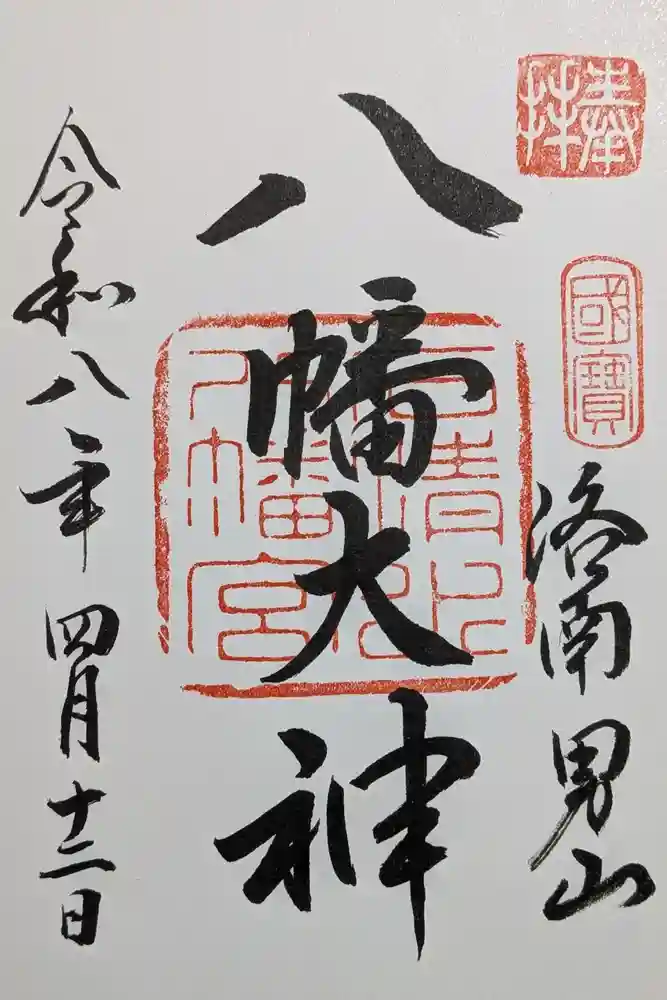 奉拝
國寶
洛南男山
八幡大神
石清水
八幡宮
令和八年四月十二日